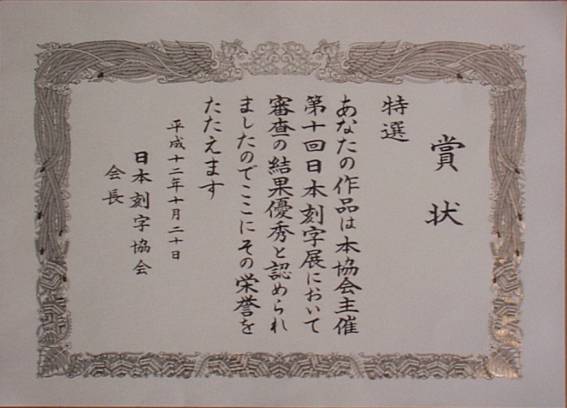 賞状
特選
あなたの作品は本協会主催
第十回日本刻字展において
審査の結果優秀と認められ
ましたのでここにその栄誉を
たたえます
平成十二年十月二十日
日本刻字協会
会長